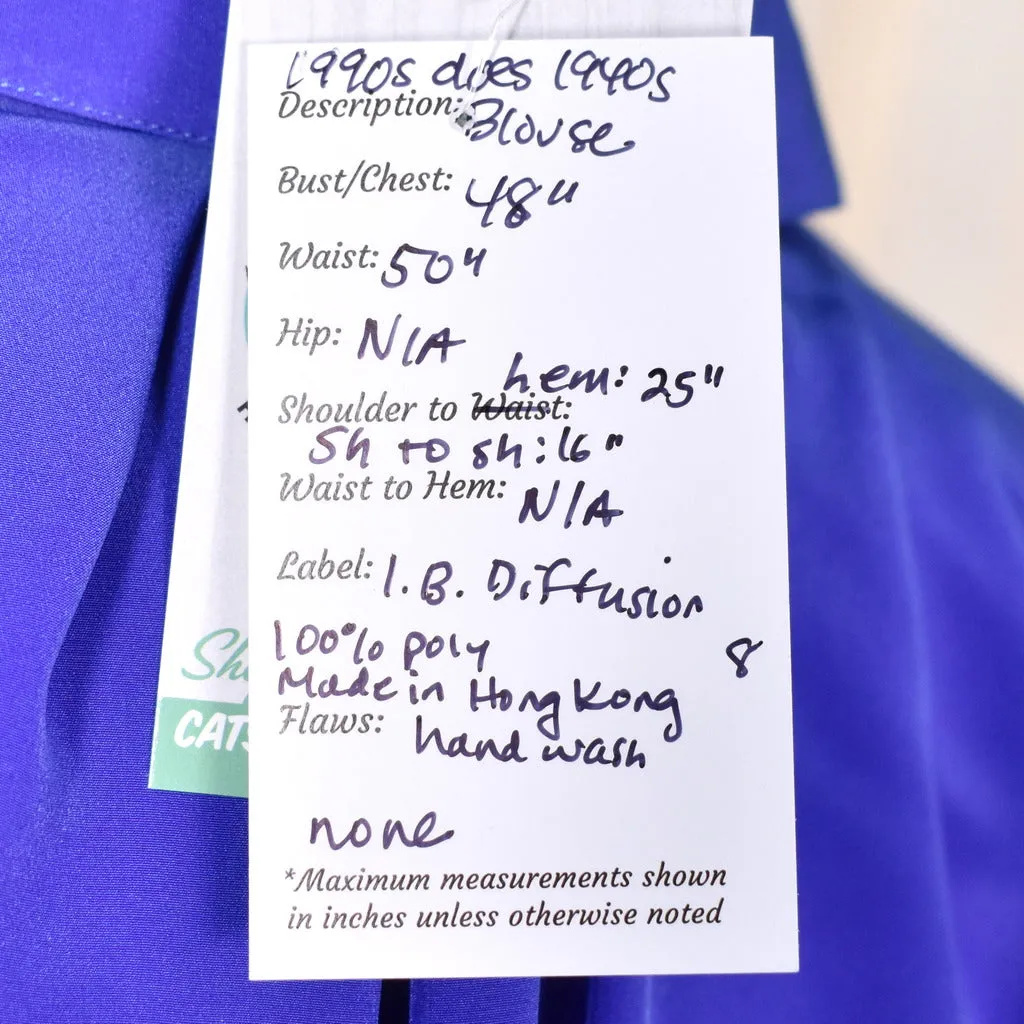 1990s does 1940s
Description: Blouse
Bust/Chest: 48"
Waist: 50"
Hip: N/A
hem: 25"
Shoulder to Waist:
Sh to sh: 16"
Waist to Hem: N/A
Label: I.B. Diffusion
100% poly 8
Made in Hong Kong
Flaws: hand wash
none
*Maximum measurements shown
in inches unless otherwise noted
Sh
CATS